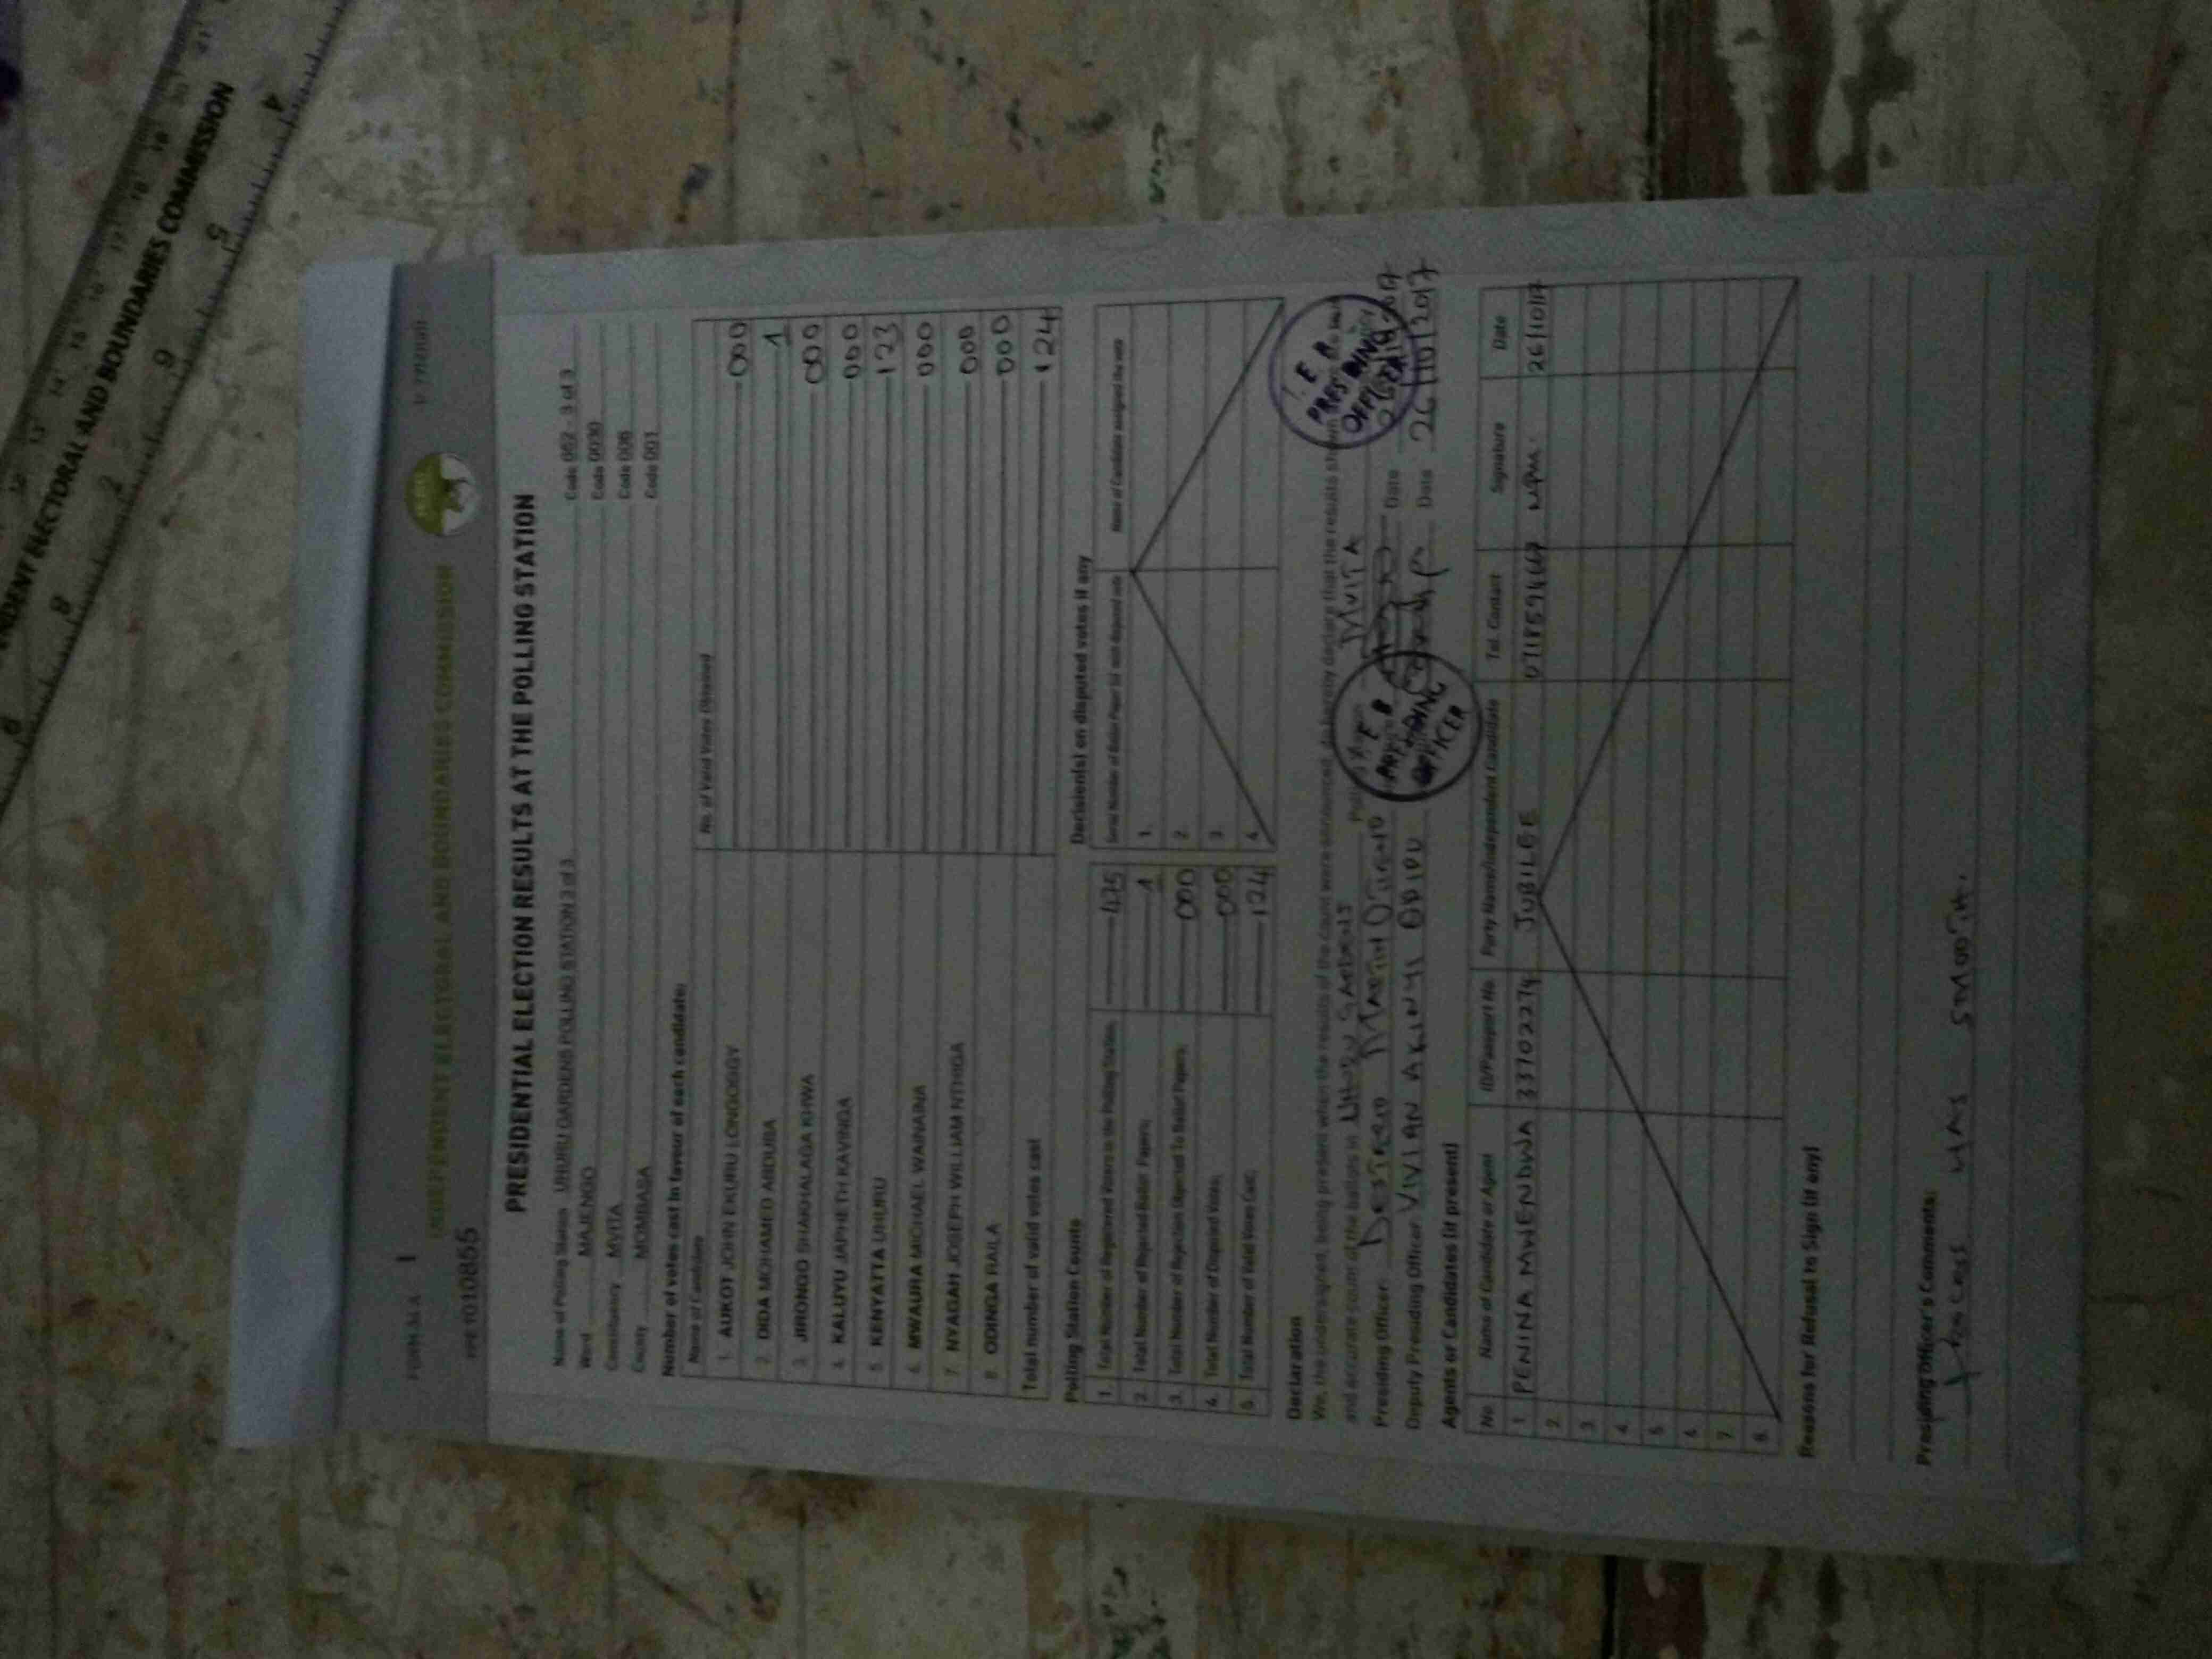 INDEPENDENT ELECTORAL AND BOUNDARIES COMMISSION
PRESIDENTIAL ELECTION RESULTS AT THE POLLING STATION
Name of Polling Station UHURU GARDENS POLLING STATION 3 of 3 Code 052 - 3 of 3
Ward MAJENGO Code 0030
Constituency MVITA Code 006
County MOMBASA Code 001
Number of votes cast in favour of each candidate:
Name of Candidate No. of Valid Votes Obtained
1. AUKOT JOHN EKURU LONGOGGY 000
2. DIDA MOHAMED ABDUBA 1
3. JIRONGO SHAKHALAGA KHWA 000
4. KALUYU JAPHETH KAVINGA 000
5. KENYATTA UHURU 123
6. MWAURA MICHAEL WAINAINA 000
7. NYAGAH JOSEPH WILLIAM NTHIGA 000
8. ODINGA RAILA 000
Total number of valid votes cast 124
Polling Station Counts
1. Total Number of Registered Voters in the Polling Station
2. Total Number of Rejected Ballot Papers 1
3. Total Number of Rejection Objected To Ballot Papers 000
4. Total Number of Disputed Votes 000
5. Total Number of Valid Votes Cast 124
Decision(s) on disputed votes if any
Name of Candidate assigned the vote
1.
2.
3.
4.
Declaration
We, the undersigned, being present when the results of the count were announced, do hereby declare that the results shown
and accurate count of the ballots in UHURU GARDENS MVITA
Presiding Officer MARTIN OTIENO Date
Deputy Presiding Officer VIVIAN AKINYI Date 26/10/2017
PRESIDING OFFICER
PRESIDING OFFICER
Agents or Candidates (if present)
No. Name of Candidate or Agent ID/Passport No. Party Name/Independent Candidate Tel. Contact Signature Date
1 PENINA MWENDWA 33702274 JUBILEE 26/10/17
2.
3.
4.
5.
6.
7.
8.
Reasons for Refusal to Sign (if any)
Presiding Officer's Comments:
WAS SMOOTH.
INDEPENDENT ELECTORAL AND BOUNDARIES COMMISSION